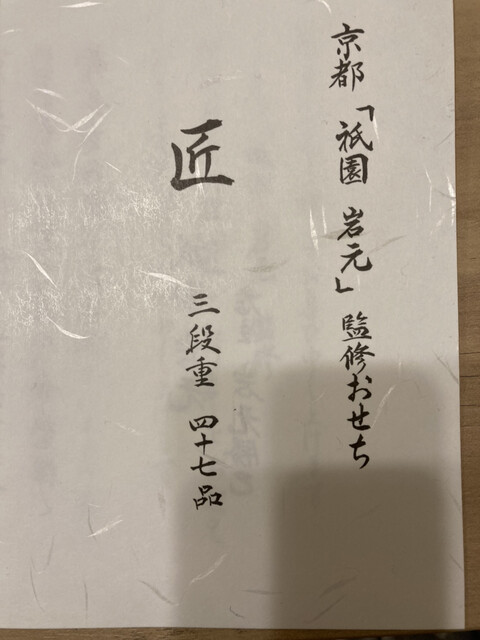 京都「祇園 岩元」監修おせち
匠
三段重 四十七品